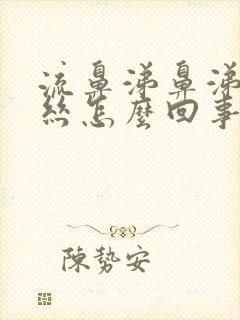 流鼻涕鼻涕
絲怎麼回事
陳勢安